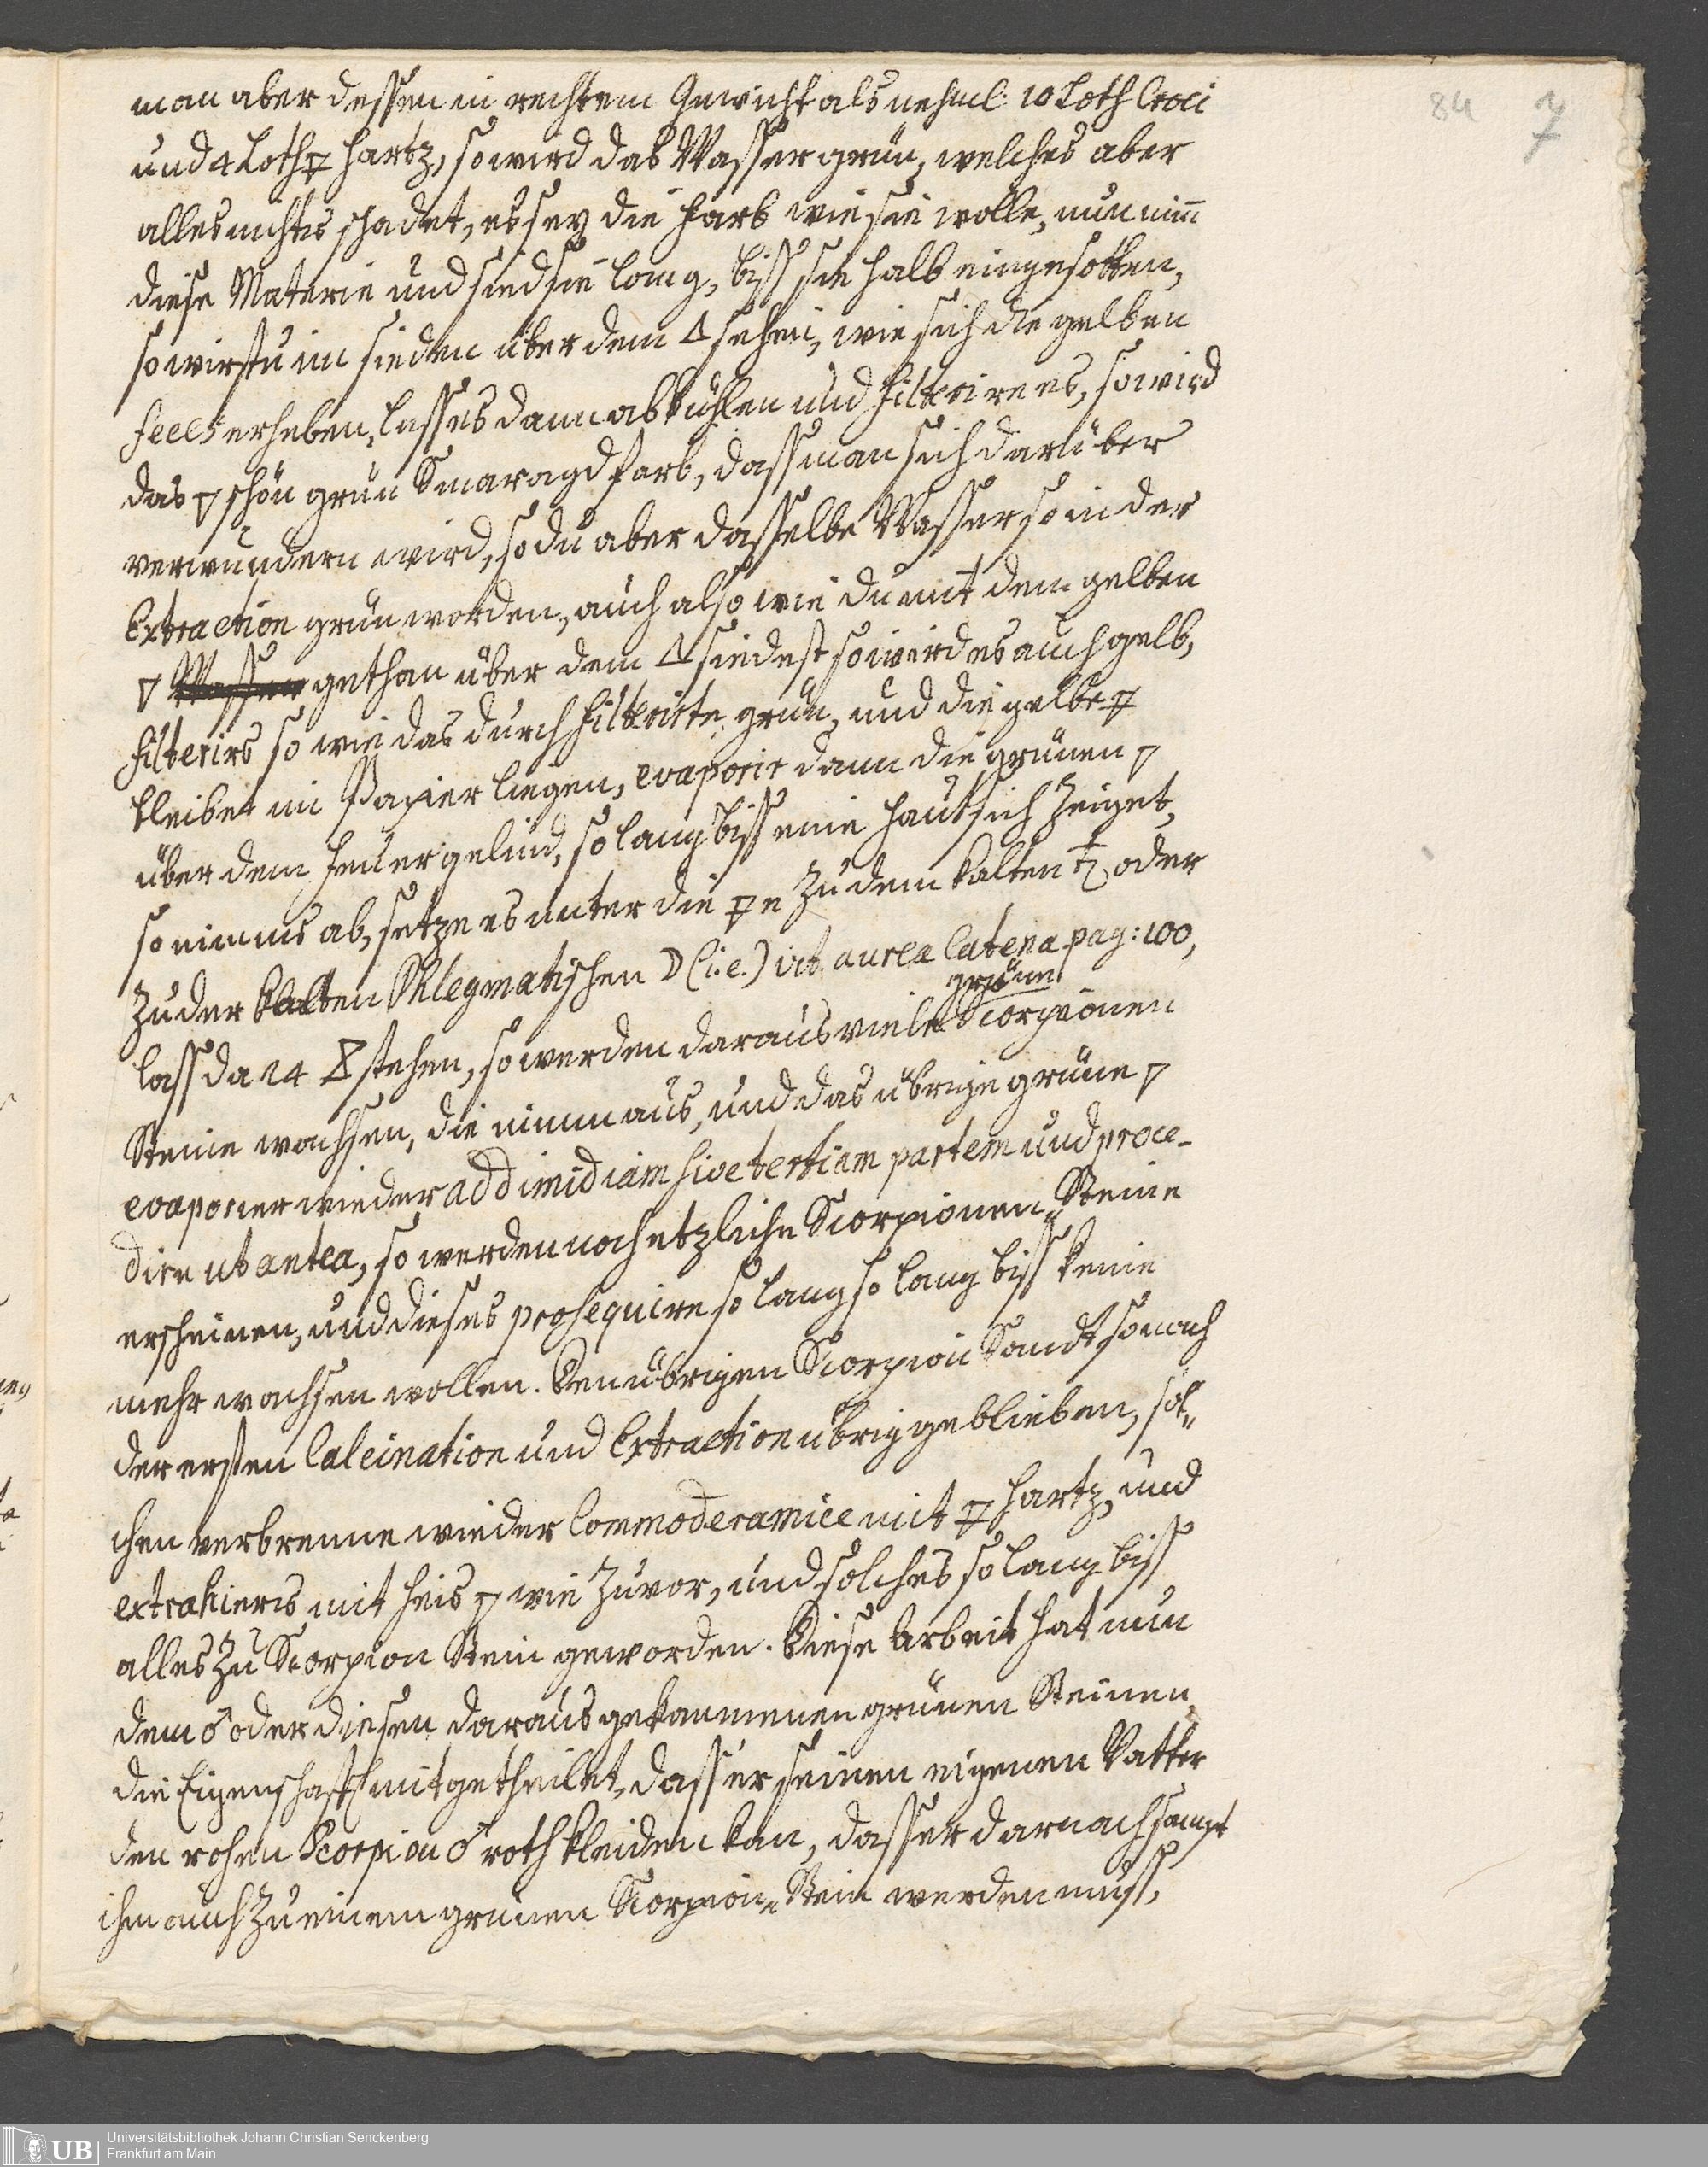 84 7
man aber dessen in rechtem Gewicht als nehml: 10 Loth Croci
und 4 Loth 🜃 hartz, so wird das Wasser grün, welches aber
alles nichts schadet, es sey die farb wie sie wolle, nun nim̄
diese Materie und sied sie lang, biss sie halb eingesotten,
so wirstu im sieden über dem 🜂 sehen, wie sich die gelben
feces erheben, lass es dann abkühlen und filterire es, so wird
das 🜄 schön grün Smaragdfarb, dass man sich darüber
verwundern wird, so du aber dasselbe Wasser so in der
Extraction grün worden, auch also wie du mit dem gelben
🜄 Wasser gethan über dem 🜂 siedest so wird es auch gelb,
filterirs so wie das durch filterirte grün, und die gelbe 🜃
bleibet im Papier liegen, evaporir dann die grünen 🜄
über dem feuer gelind, so lang biss eine haut sich zeiget,
so nimms ab, setze es unter die 🜃e zu dem kalten ♄ oder
zu der kalten Phlegmatischen ☽ (i.e.) vid. aurea Catena pag: 100,
grüne
lass da 14 stehen, so werden daraus viele Scorpionen
Steine wachsen, die nimm aus, und das übrige grüne 🜄
evaporier wieder ad dimidiam sive tertiam partem und proce-
dire ut antea, so werden noch etzliche Scorpionen Steine
erscheinen, und dieses prosequire so lang so lang biss keine
mehr wachsen wollen. Den übrigen Scorpion Sandt so nach
der ersten Calcination und Extraction übrig geblieben, sol„
chen verbrenne wieder Commoderamice mit 🜃 hartz, und
extrahiers mit heis 🜄 wie zuvor, und solches so lang biss
alles zu Scorpion Stein geworden. Diese Arbeit hat nun
dem ♂ oder diesen daraus gekommenen grünen Steinen
die Eigenschafft mitgetheilet, dass er seinen eigenen Vatter
den rohen Scorpion ♂ roth kleiden kan, dass er darnach sampt
ihm auch zu einem grünen Scorpion„Stein werden muss,
UB Universitätsbibliothek Johann Christian Senckenberg
Frankfurt am Main